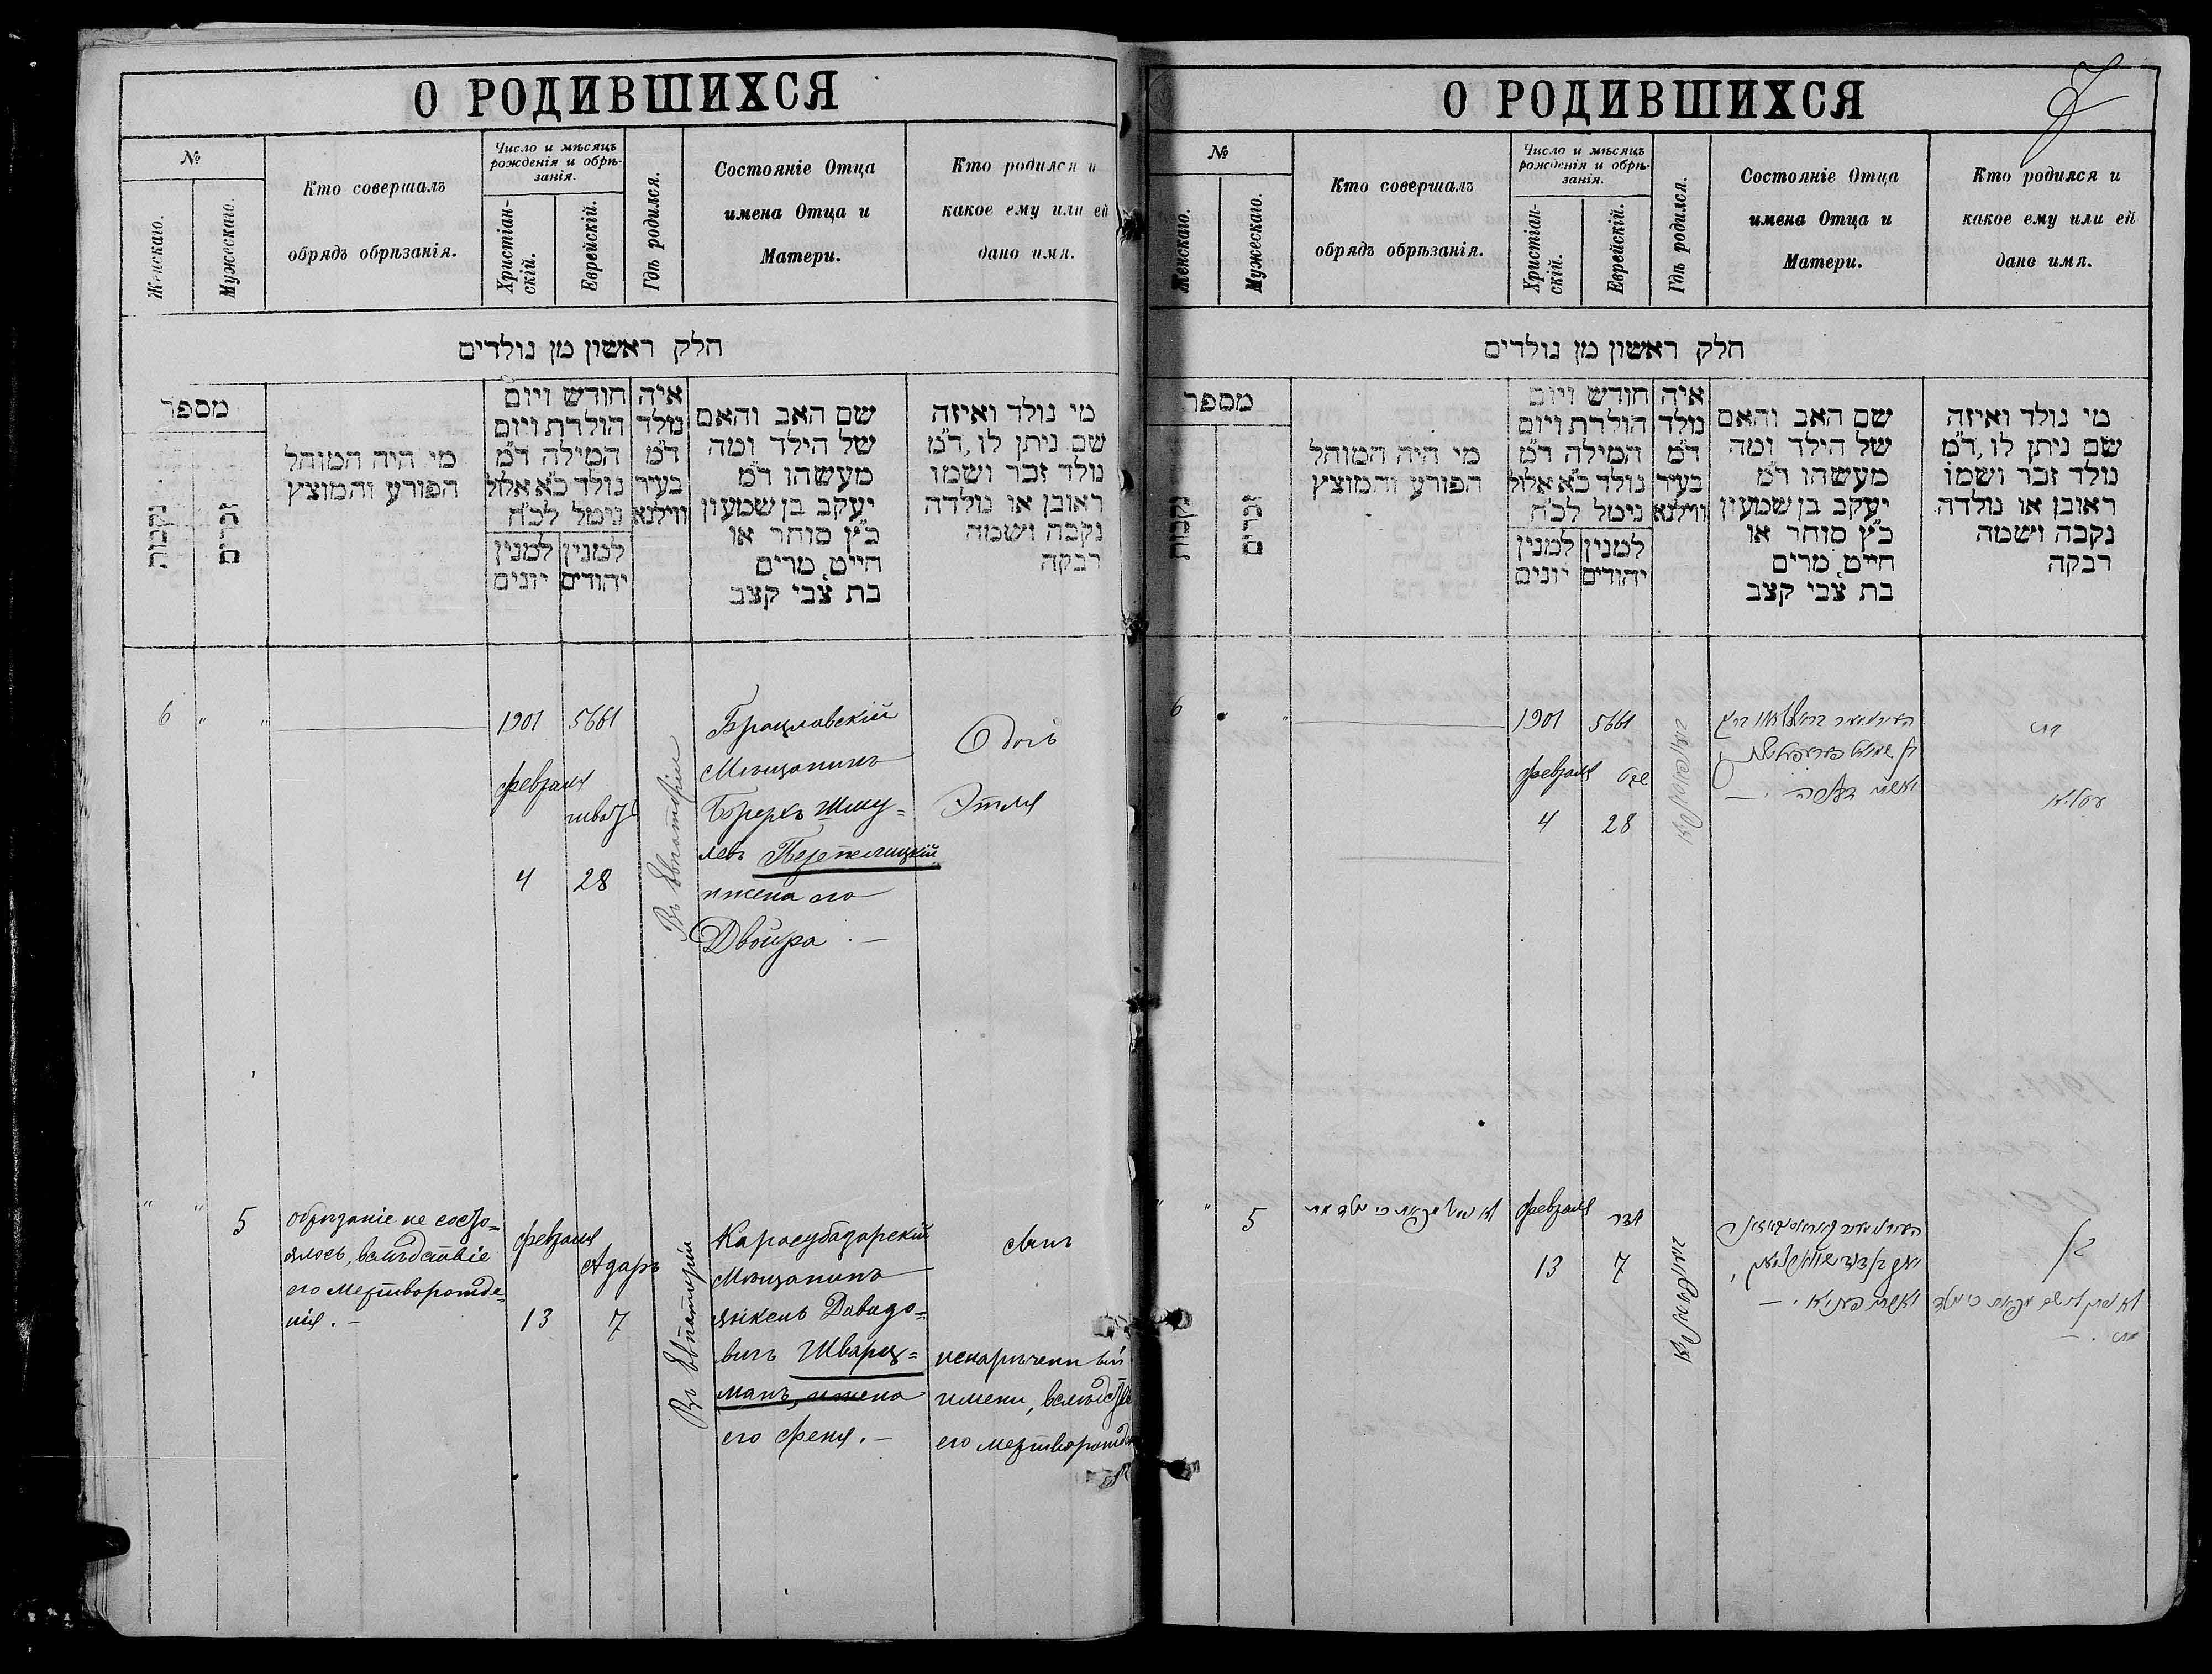 О РОДИВШИХСЯ
№
Женскаго.
Мужескаго.
Кто совершалъ
обрядъ обрѣзанія.
Число и мѣсяцъ
рожденія и обрѣ-
занія.
Христіан-
скій.
Еврейскій.
Гдѣ родился.
Состояніе Отца
имена Отца и
Матери.
Кто родился и
какое ему или ей
дано имя.
חלק ראשון מן נולדים
מספר
נקבות
זכרים
מי היה המוהל
הפורע והמוצץ
חודש ויום
הולדת ויום
המילה ד״מ
נולד כ״א אלול
נימל לכ״ח
למנין
יהודים
למנין
יונים
איה
נולד
ד״מ
בעיר
ווילנא
שם האב והאם
של הילד ומה
מעשהו ד״מ
יעקב בן שמעון
כ״ץ סוחר או
חייט, מרים
בת צבי קצב
מי נולד ואיזה
שם ניתן לו, ד״מ
נולד זכר ושמו
ראובן או נולדה
נקבה ושמה
רבקה
6 " "
1901 5661
февраля
шватъ
4 28
Въ Евпаторіи
Брацлавскій
Мѣщанинъ
Берекъ Шму=
левъ Перепелицкій
и жена его
Двойра. —
Дочь
Этля
" " 5
обрѣзаніе не состо=
ялось, вслѣдствіе
его мертворожде=
нія. —
февраля
Адаръ
13 7
Въ Евпаторіи
Карасубазарскій
Мѣщанинъ
Давидо=
вичъ Шварц=
манъ, и жена
его Феня. —
сынъ
ненареченный
имени, вслѣдств
его мертворожде
О РОДИВШИХСЯ
7
№
Женскаго.
Мужескаго.
Кто совершалъ
обрядъ обрѣзанія.
Число и мѣсяцъ
рожденія и обрѣ-
занія.
Христіан-
скій.
Еврейскій.
Гдѣ родился.
Состояніе Отца
имена Отца и
Матери.
Кто родился и
какое ему или ей
дано имя.
חלק ראשון מן נולדים
מספר
נקבות
זכרים
מי היה המוהל
הפורע והמוצץ
חודש ויום
הולדת ויום
המילה ד״מ
נולד כ״א אלול
נימל לכ״ח
למנין
יהודים
למנין
יונים
איה
נולד
ד״מ
בעיר
ווילנא
שם האב והאם
של הילד ומה
מעשהו ד״מ
יעקב בן שמעון
כ״ץ סוחר או
חייט, מרים
בת צבי קצב
מי נולד ואיזה
שם ניתן לו, ד״מ
נולד זכר ושמו
ראובן או נולדה
נקבה ושמה
רבקה
6 " "
1901 5661
февраля שבט
4 28
בת
" " 5
февраля אדר
13 7
בן